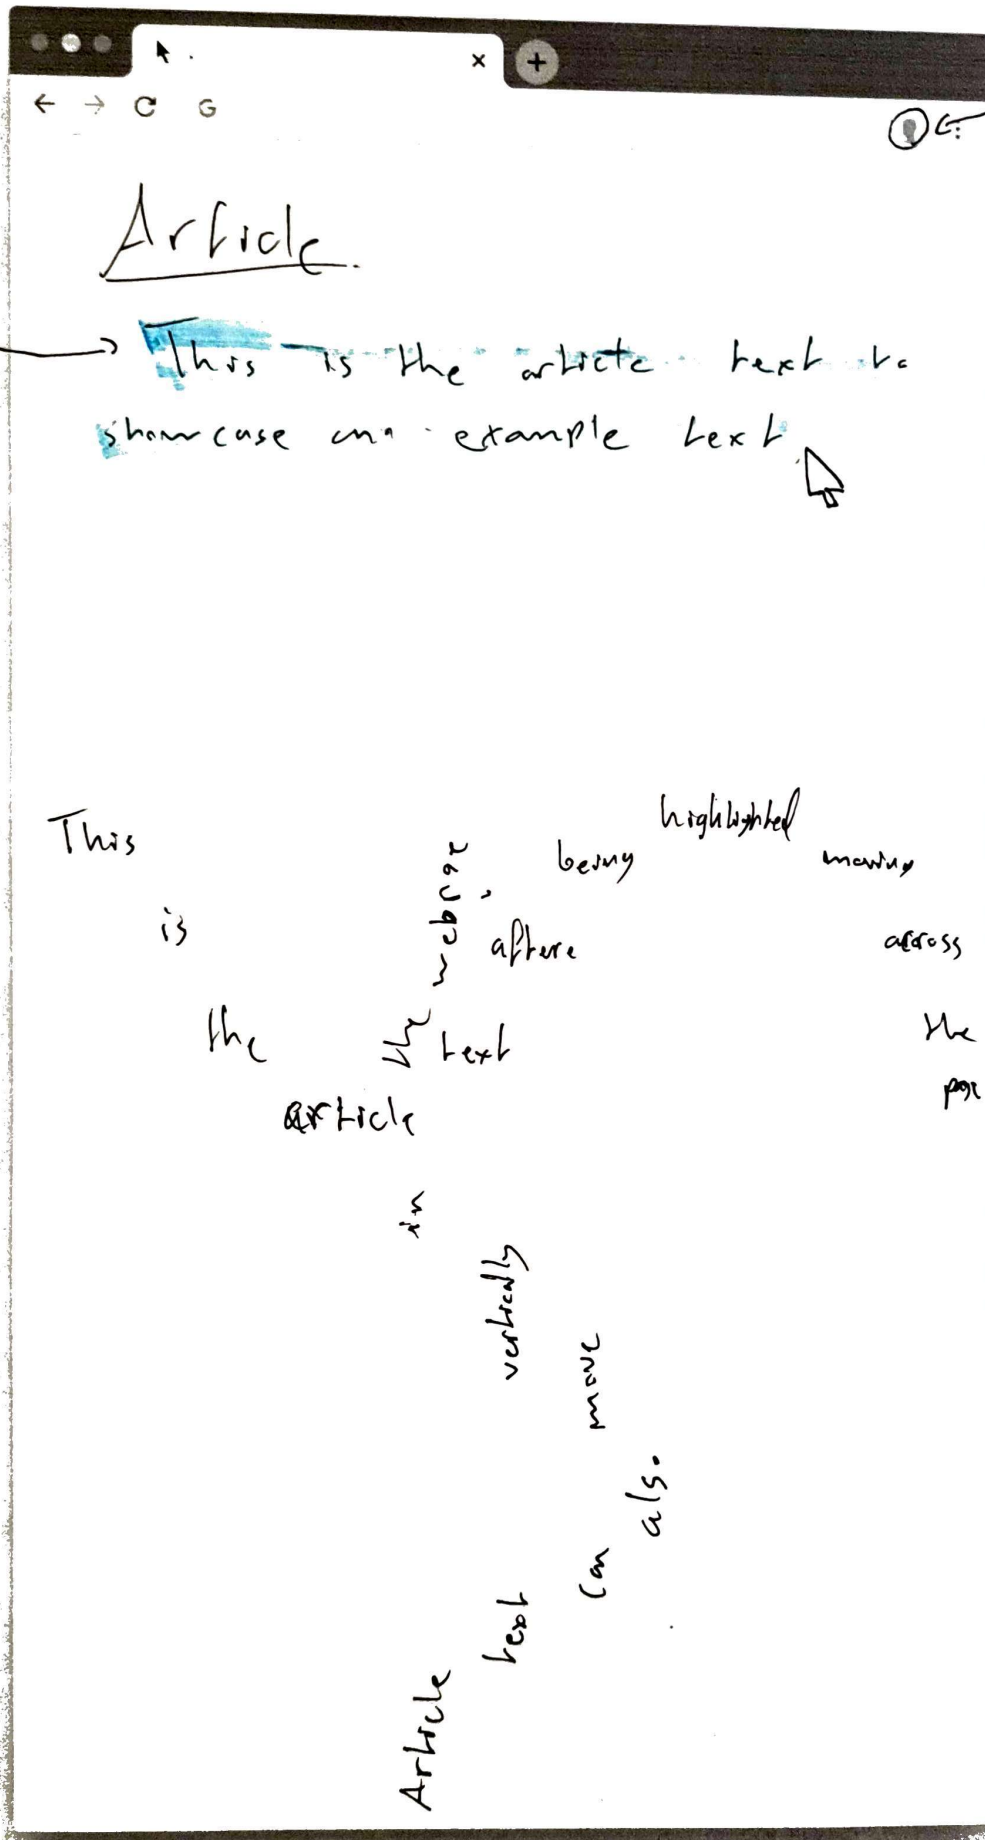 Article
This is the article text to
showcase an example text
This
is
the
article
text
aftere
being
highlighted
moving
across
the
Article
text
can
also
move
vertically
in
the
webpage